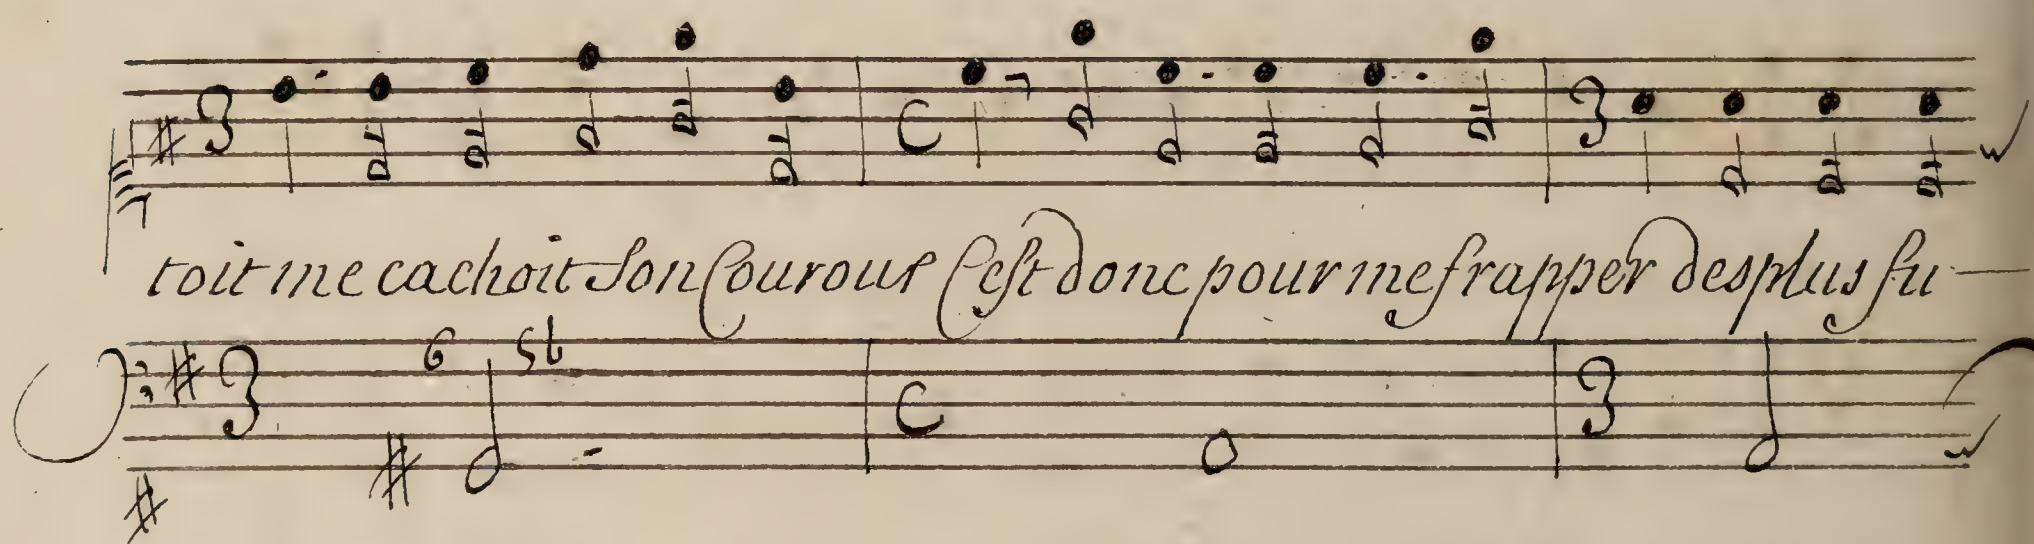 3 C 3
toit me cachoit son Courous C'est donc pour me frapper des plus fu-
6 5b
3 C 3